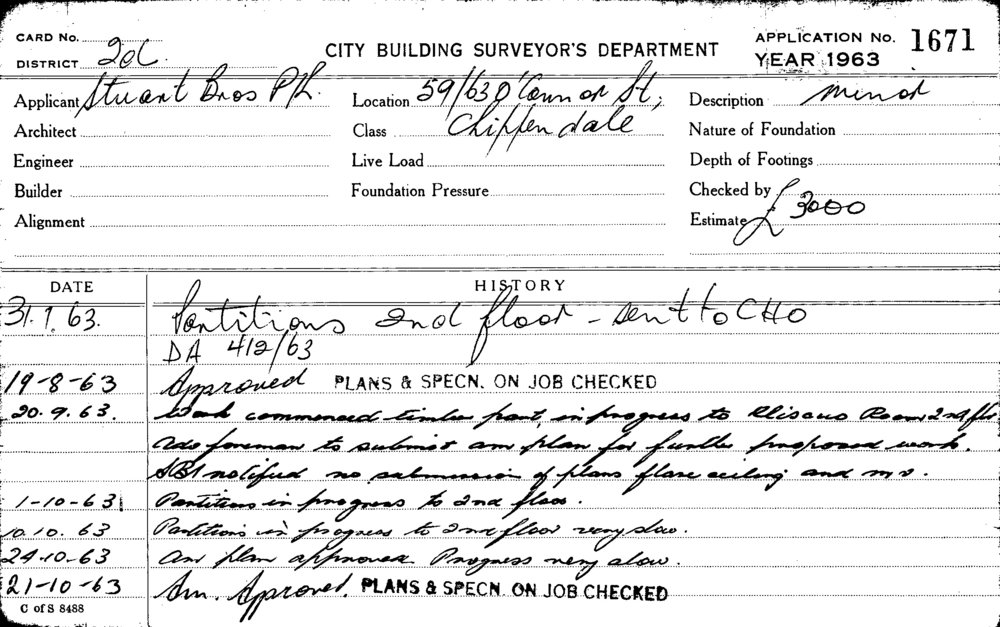 CARD No.
DISTRICT 2oC.
CITY BUILDING SURVEYOR'S DEPARTMENT
APPLICATION No. 1671
YEAR 1963
Applicant Stuart Bros P/L.
Location 59/63 O'Connor St,
Description Minor
Architect
Class Chippendale
Nature of Foundation
Engineer
Live Load
Depth of Footings
Builder
Foundation Pressure
Checked by
Alignment
Estimate £3000
DATE
HISTORY
31.7.63. Partitions 2nd floor - sent to CHO
DA 412/63
19-8-63 Approved PLANS & SPECN. ON JOB CHECKED
20.9.63. Work commenced timber part, in progress to Room 2nd flr
foreman to submit am plan for further proposed work.
SBI notified no submission of plans ceiling and m v.
1-10-63 Partitions in progress to 2nd floor.
10.10.63 Partitions in progress to 2nd floor very slow.
24-10-63 am plan approved. Progress very slow.
21-10-63 Am. Approved. PLANS & SPECN. ON JOB CHECKED
C of S 8488